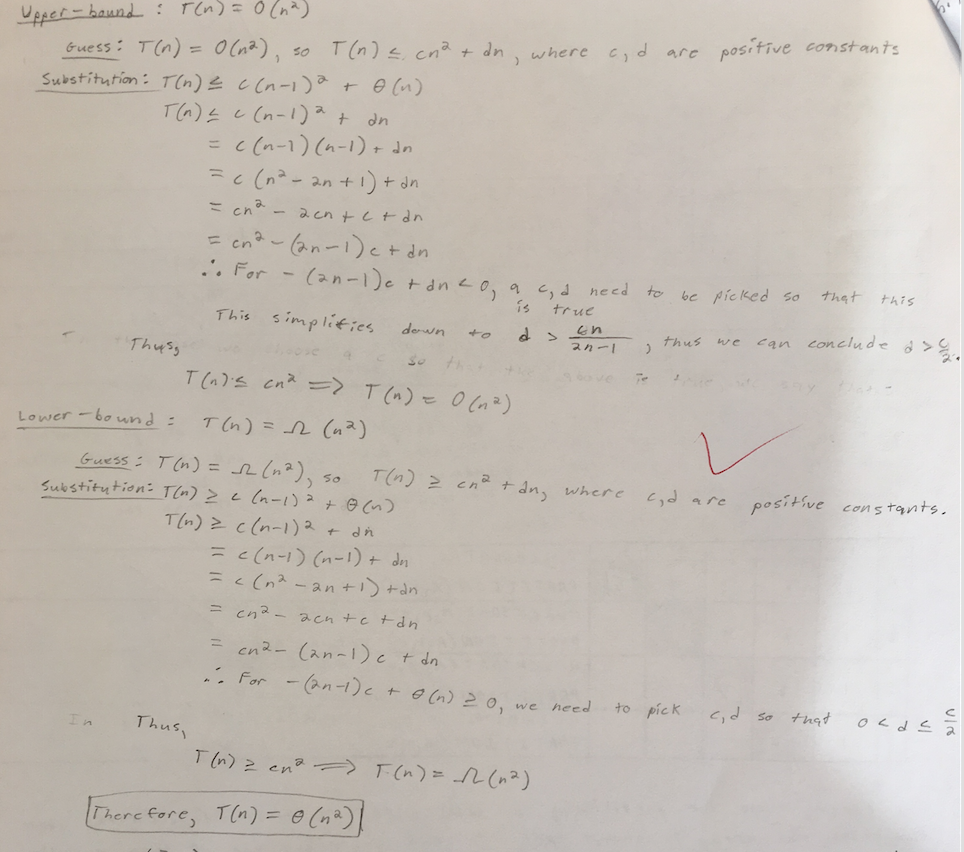 Upper-bound : T(n) = O(n²)
Guess: T(n) = O(n²), so T(n) ≤ cn² + dn, where c, d are positive constants
Substitution: T(n) ≤ c(n-1)² + θ(n)
T(n) ≤ c(n-1)² + dn
= c(n-1)(n-1) + dn
= c(n² - 2n + 1) + dn
= cn² - 2cn + c + dn
= cn² - (2n-1)c + dn
∴ For - (2n-1)c + dn < 0, a c,d need to be picked so that this
is true
This simplifies down to d > cn/2n-1, thus we can conclude d > c/2.
Thus,
T(n) ≤ cn² ⟹ T(n) = O(n²)
Lower-bound : T(n) = Ω(n²)
Guess: T(n) = Ω(n²), so T(n) ≥ cn² + dn, where c,d are positive constants.
Substitution: T(n) ≥ c(n-1)² + θ(n)
T(n) ≥ c(n-1)² + dn
= c(n-1)(n-1) + dn
= c(n² - 2n + 1) + dn
= cn² - 2cn + c + dn
= cn² - (2n-1)c + dn
∴ For -(2n-1)c + θ(n) ≥ 0, we need to pick c,d so that 0 < d ≤ c/2
In Thus,
T(n) ≥ cn² ⟹ T(n) = Ω(n²)
Therefore, T(n) = θ(n²)